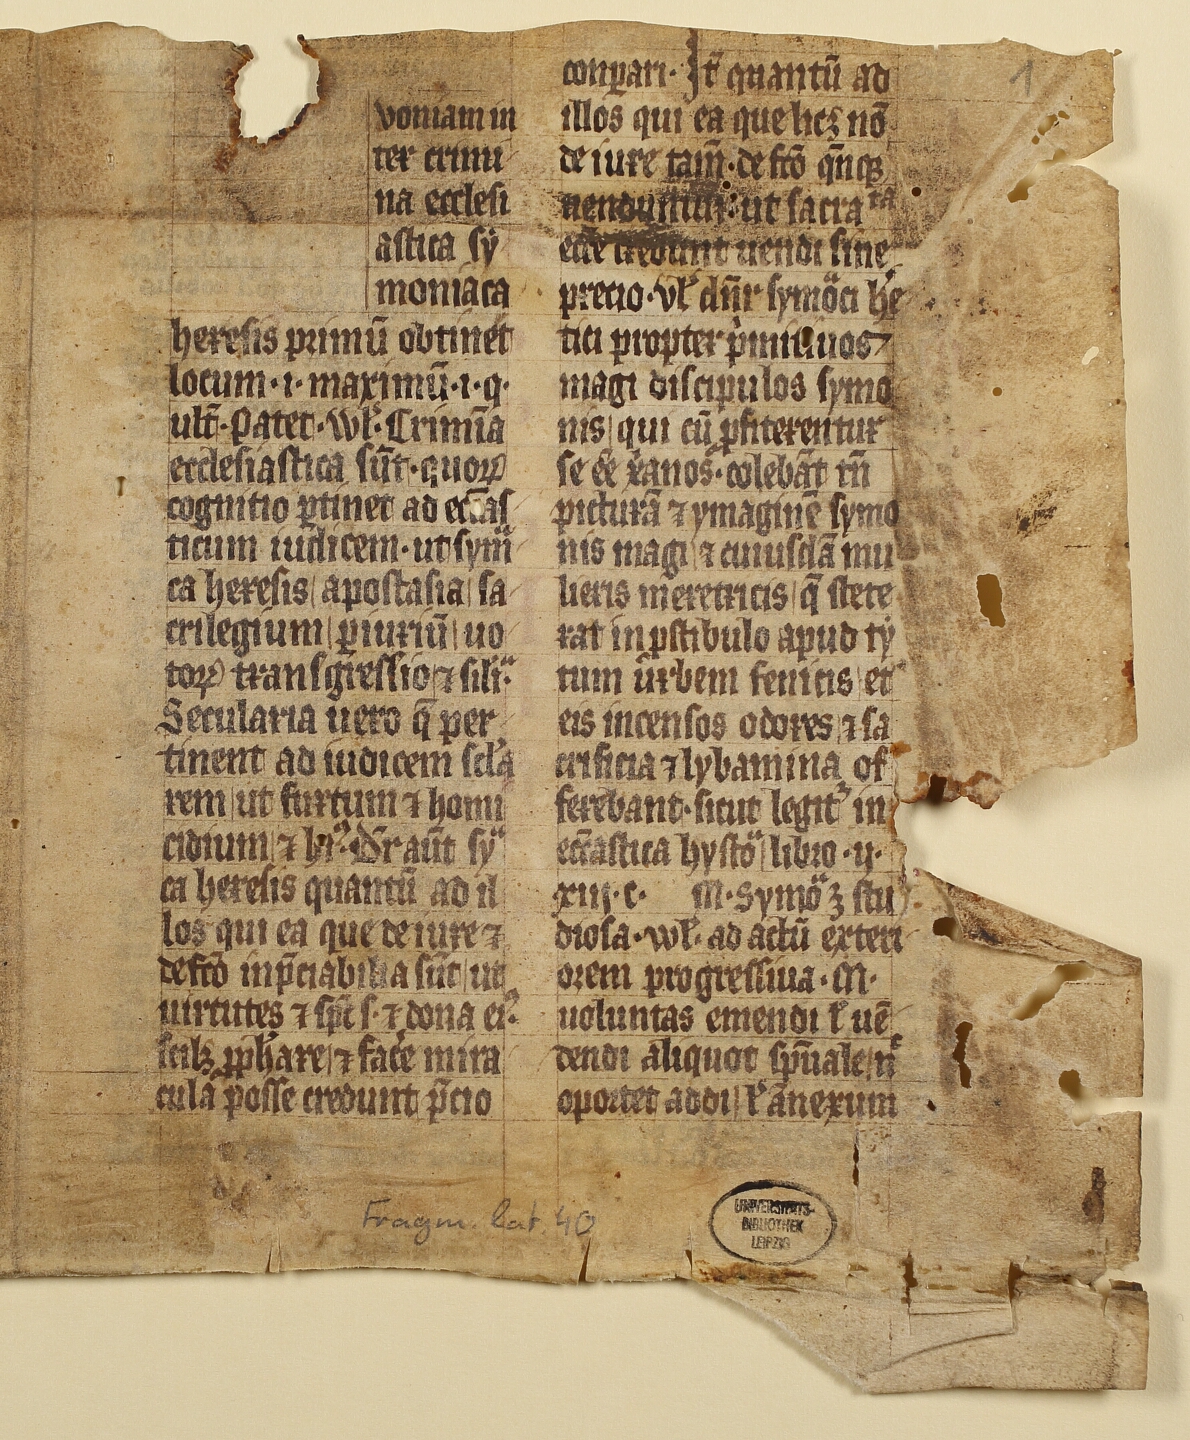 voniam in
ter crimi
na ecclesi
astica sy
moniaca
heresis primū obtinet
locum · i · maximū · i · q ·
ult̄ · Patet · Vl̄ · Crimīa
ecclesiastica sūt · quoꝝ
cognitio ꝑtinet ad ecc̄ias
ticum iudicem · ut sym̄
ca heresis apostasia sa
crilegium ꝑiuriū uo
toꝝ transgressio ⁊ sil̄ia ·
Secularia uero q̄ per
tinent ad iudicem scl̄a
rem ut furtum ⁊ homi
cidium ⁊ hꝰ · Dr̄ aut̄ sy
ca heresis quantū ad il
los qui ea que de iure ⁊
de fcō inp̄ciabilia sūt ut
uirtutes ⁊ sp̄c s · ⁊ dona eiꝰ ·
scilꝫ ꝓph̄are ⁊ fac̄e mira
cula posse credunt p̄cio
conpari · Jt̄ quantū ad
illos qui ea que licꝫ nō
de iure tam̄ · de fcō qn̄qꝫ
uenduntur · ut sacra ta
ecc̄e credunt uendi sine
precio · Vl̄ dn̄r symoci he
tici propter p̄mitiuos
magi discipulos symo
nis qui cū ꝓfiterentur
se ee xanos · colebāt tn̄
picturā ⁊ ymaginē symo
nis magi ⁊ cuiusdā mu
lieris meretricis q̄ stete
rat in ꝓstibulo apud ty
rum urbem fenicis et
eis incensos odores ⁊ sa
crificia ⁊ lybamina of
ferebant · sicut legit᷑ in
ecc̄astica hysto libro · ij ·
xiij · c · M · Symoꝫ stu
diosa · vl̄ · ad actū exteri
orem progressiua · M ·
uoluntas emendi l̄ uē
dendi aliquot sp̄uale n̄
oportet addi l̄ anexum
Fragm. lat. 40
UNIVERSITÄTS-
BIBLIOTHEK
LEIPZIG
1